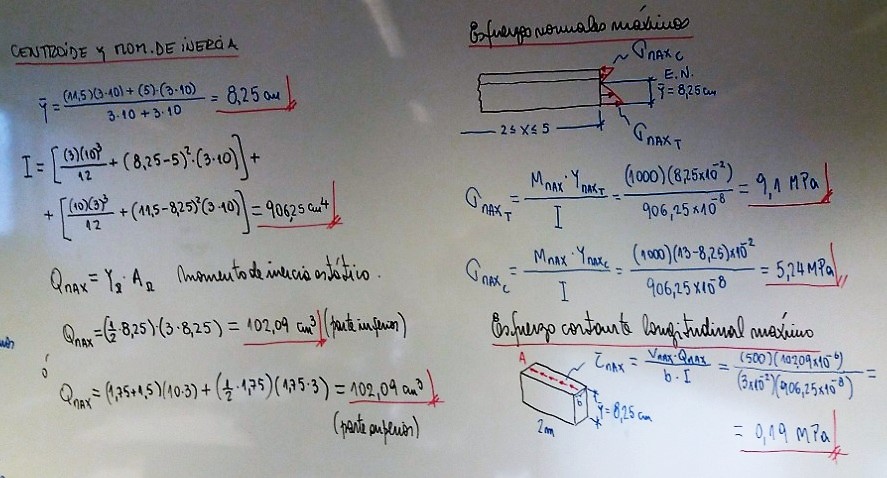 CENTROIDE Y MOM. DE INERCIA
ȳ = (11,5)(3·10) + (5)·(3·10) / 3·10 + 3·10 = 8,25 cm
I = [(3)(10)³/12 + (8,25-5)²·(3·10)] +
+ [(10)(3)³/12 + (11,5-8,25)²(3·10)] = 906,25 cm⁴
Q_MAX = Y_Ω · A_Ω momento de inercia estático.
Q_MAX = (1/2·8,25)·(3·8,25) = 102,09 cm³ (parte inferior)
ó
Q_MAX = (1,75+1,5)(10·3) + (1/2·1,75)(1,75·3) = 102,09 cm³
(parte superior)
Esfuerzo normales máximos
σ_MAX C
E.N.
ȳ = 8,25 cm
2 ≤ x ≤ 5
σ_MAX T
σ_MAX T = M_MAX · Y_MAX T / I = (1000)(8,25x10⁻²) / 906,25x10⁻⁸ = 9,1 MPa
σ_MAX C = M_MAX · Y_MAX C / I = (1000)(13-8,25)x10⁻² / 906,25x10⁻⁸ = 5,24 MPa
Esfuerzo cortante longitudinal máximo
A
τ_MAX = V_MAX · Q_MAX / b · I = (500)(102,09x10⁻⁶) / (3x10⁻²)(906,25x10⁻⁸) =
b
ȳ = 8,25 cm
2m
= 0,19 MPa